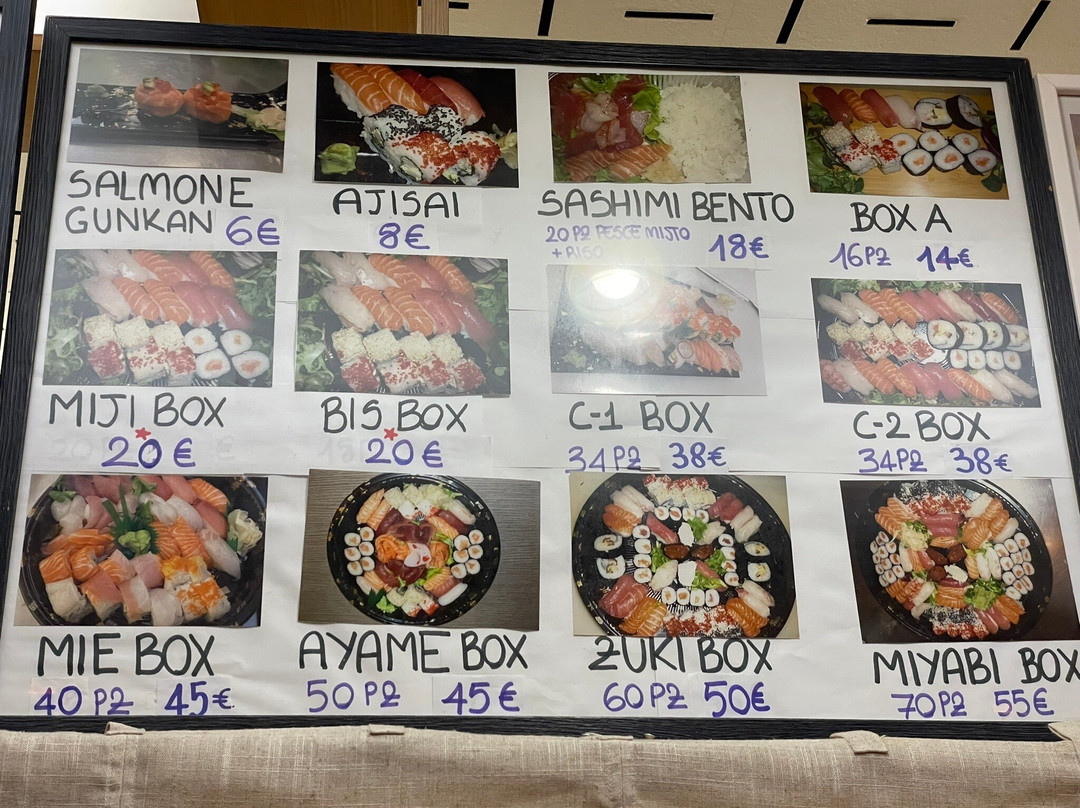 SALMONE
GUNKAN 6€
AJISAI
8€
SASHIMI BENTO
20 PZ PESCE MISTO
+ RISO 18€
BOX A
16PZ 14€
MIJI BOX
20€
BIS BOX
20€
C-1 BOX
34PZ 38€
C-2 BOX
34PZ 38€
MIE BOX
40 PZ 45€
AYAME BOX
50 PZ 45€
ZUKI BOX
60 PZ 50€
MIYABI BOX
70PZ 55€